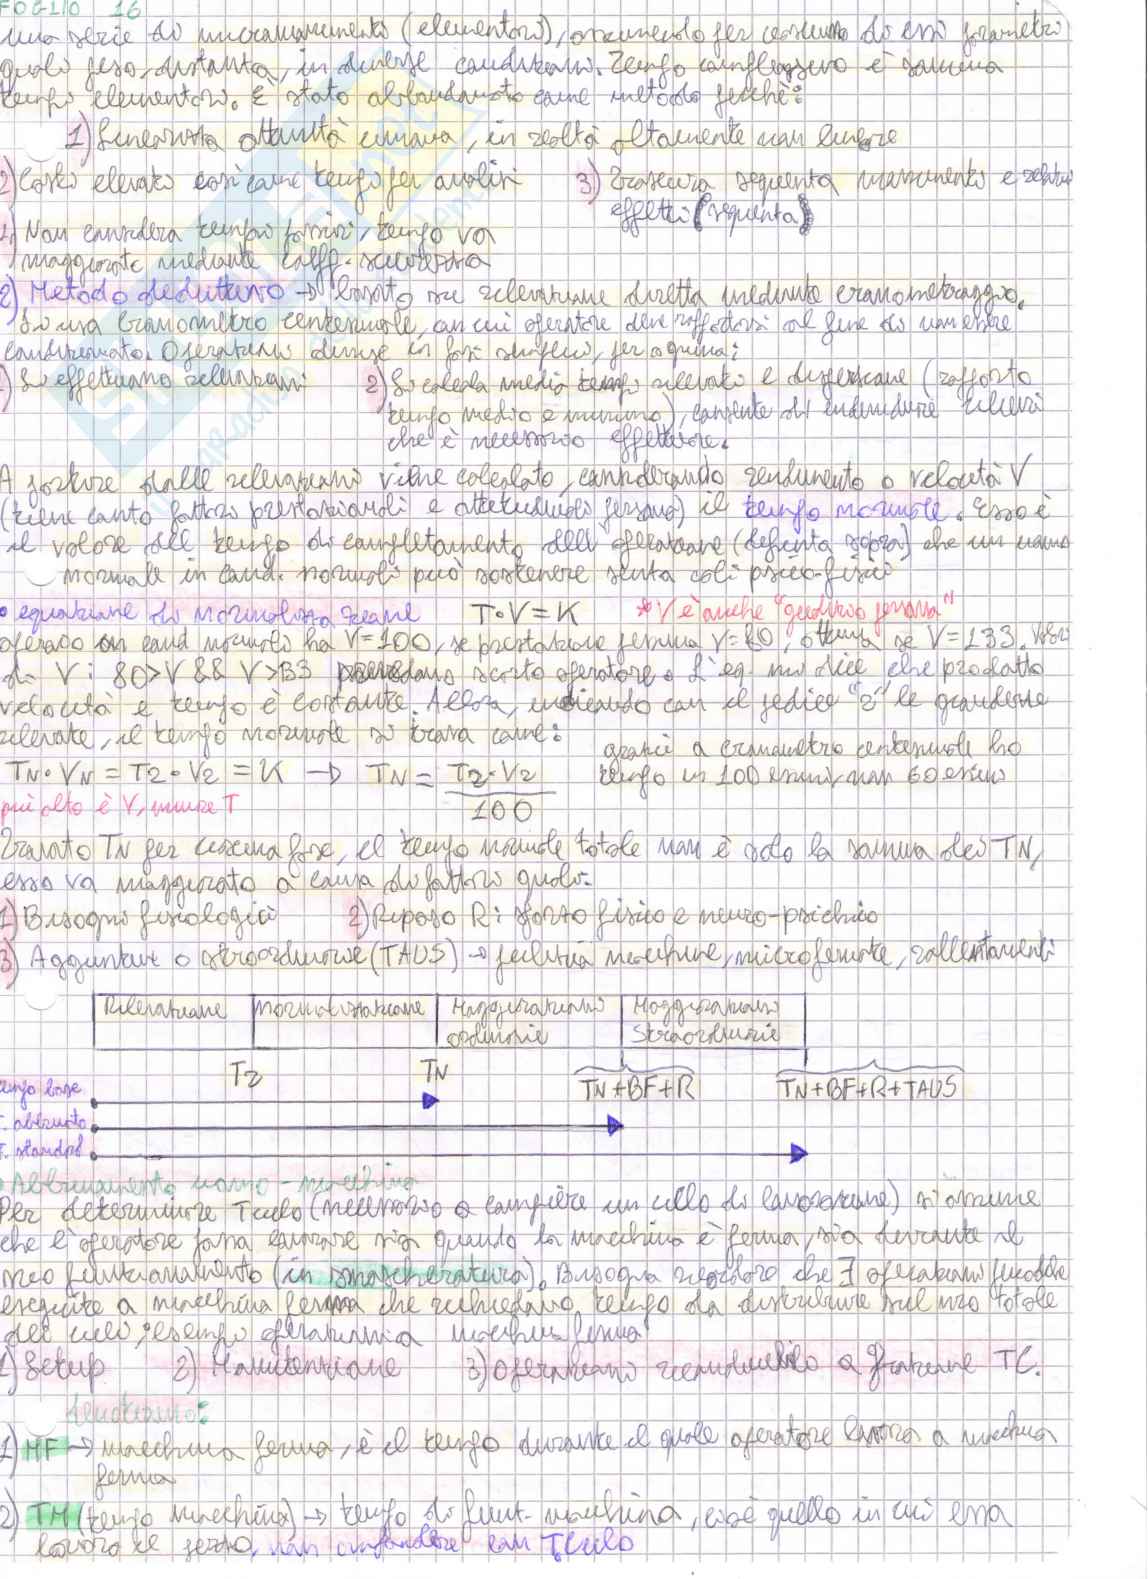 FOGLIO 16
una serie di micromovimenti (elementari), assumendo per ciascuno di essi parametri
quali peso, distanza, in diverse condizioni. Tempo complessivo è somma
tempi elementari. È stato abbandonato come metodo perchè:
1) Generalizza attività umana, in realtà altamente non lineare
2) Costi elevati così come tempo per analisi
3) Trascura sequenza movimento e relativi
effetti (sequenza)
4) Non considera tempi passivi, tempo va
maggiorato mediante coeff. sicurezza
2) Metodo deduttivo → basato su rilevazione diretta mediante cronometraggio.
Si usa cronometro centesimale, a cui operatore deve raffrontarsi al fine di non essere
condizionato. Operazioni divise in fasi semplici, per ognuna:
1) Si effettuano rilevazioni
2) Si calcola media tempi rilevati e dispersione (rapporto
tempo medio e minimo), consente di individuare rilievi
che è necessario effettuare.
A partire dalle rilevazioni viene calcolato, considerando rendimento o velocità V
(tiene conto fattori prestazionali e attitudinali persona) il tempo normale. Esso è
il valore del tempo di completamento dell'operazione (definita sopra) che un uomo
normale in cond. normali può sostenere senza cali psico-fisici
• equazione di normalizzazione T·V=K * V è anche "giudizio persona"
operaio in cond normali ha V=100, se prestazione minima V=80, ottima se V=133. Valori
di V: 80>V && V>133 prevedono scarto operatore. L'eq. mi dice che prodotto
velocità e tempo è costante. Allora, indicando con il pedice "r" le grandezze
rilevate, il tempo normale si trova come:
TN·VN = Tr·Vr = K → TN = Tr·Vr / 100
grazie a cronometro centesimale ho
tempo in 100esimi, non 60esimi
più alto è V, minore T
Trovato TN per ciascuna fase, il tempo normale totale non è solo la somma dei TN,
esso va maggiorato a causa di fattori quali:
1) Bisogni fisiologici 2) Riposo R: sforzo fisico e neuro-psichico
3) Aggiuntive o straordinarie (TAUS) → pulizia macchine, microfermate, rallentamenti
Rilevazione Normalizzazione Maggiorazioni
ordinarie Maggiorazioni
Straordinarie
Tr TN TN+BF+R TN+BF+R+TAUS
tempo base
T. abbinato
T. standard
• Abbinamento uomo-macchina
Per determinare Tciclo (necessario a compiere un ciclo di lavorazione) si assume
che l'operatore possa lavorare sia quando la macchina è ferma, sia durante il
suo funzionamento (in smascheratura). Bisogna ricordare che ∃ operazioni periodiche
eseguite a macchina ferma che richiedono tempo da distribuire sul suo totale
del ciclo, esempio operazioni a macchina ferma
1) Setup 2) Manutenzione 3) Operazioni riconducibili a frazione TC.
1) MF → macchina ferma, è il tempo durante il quale operatore lavora a macchina
ferma
2) TM (tempo macchina) → tempo di funz. macchina, cioè quello in cui essa
lavora il pezzo, non confondere con Tciclo